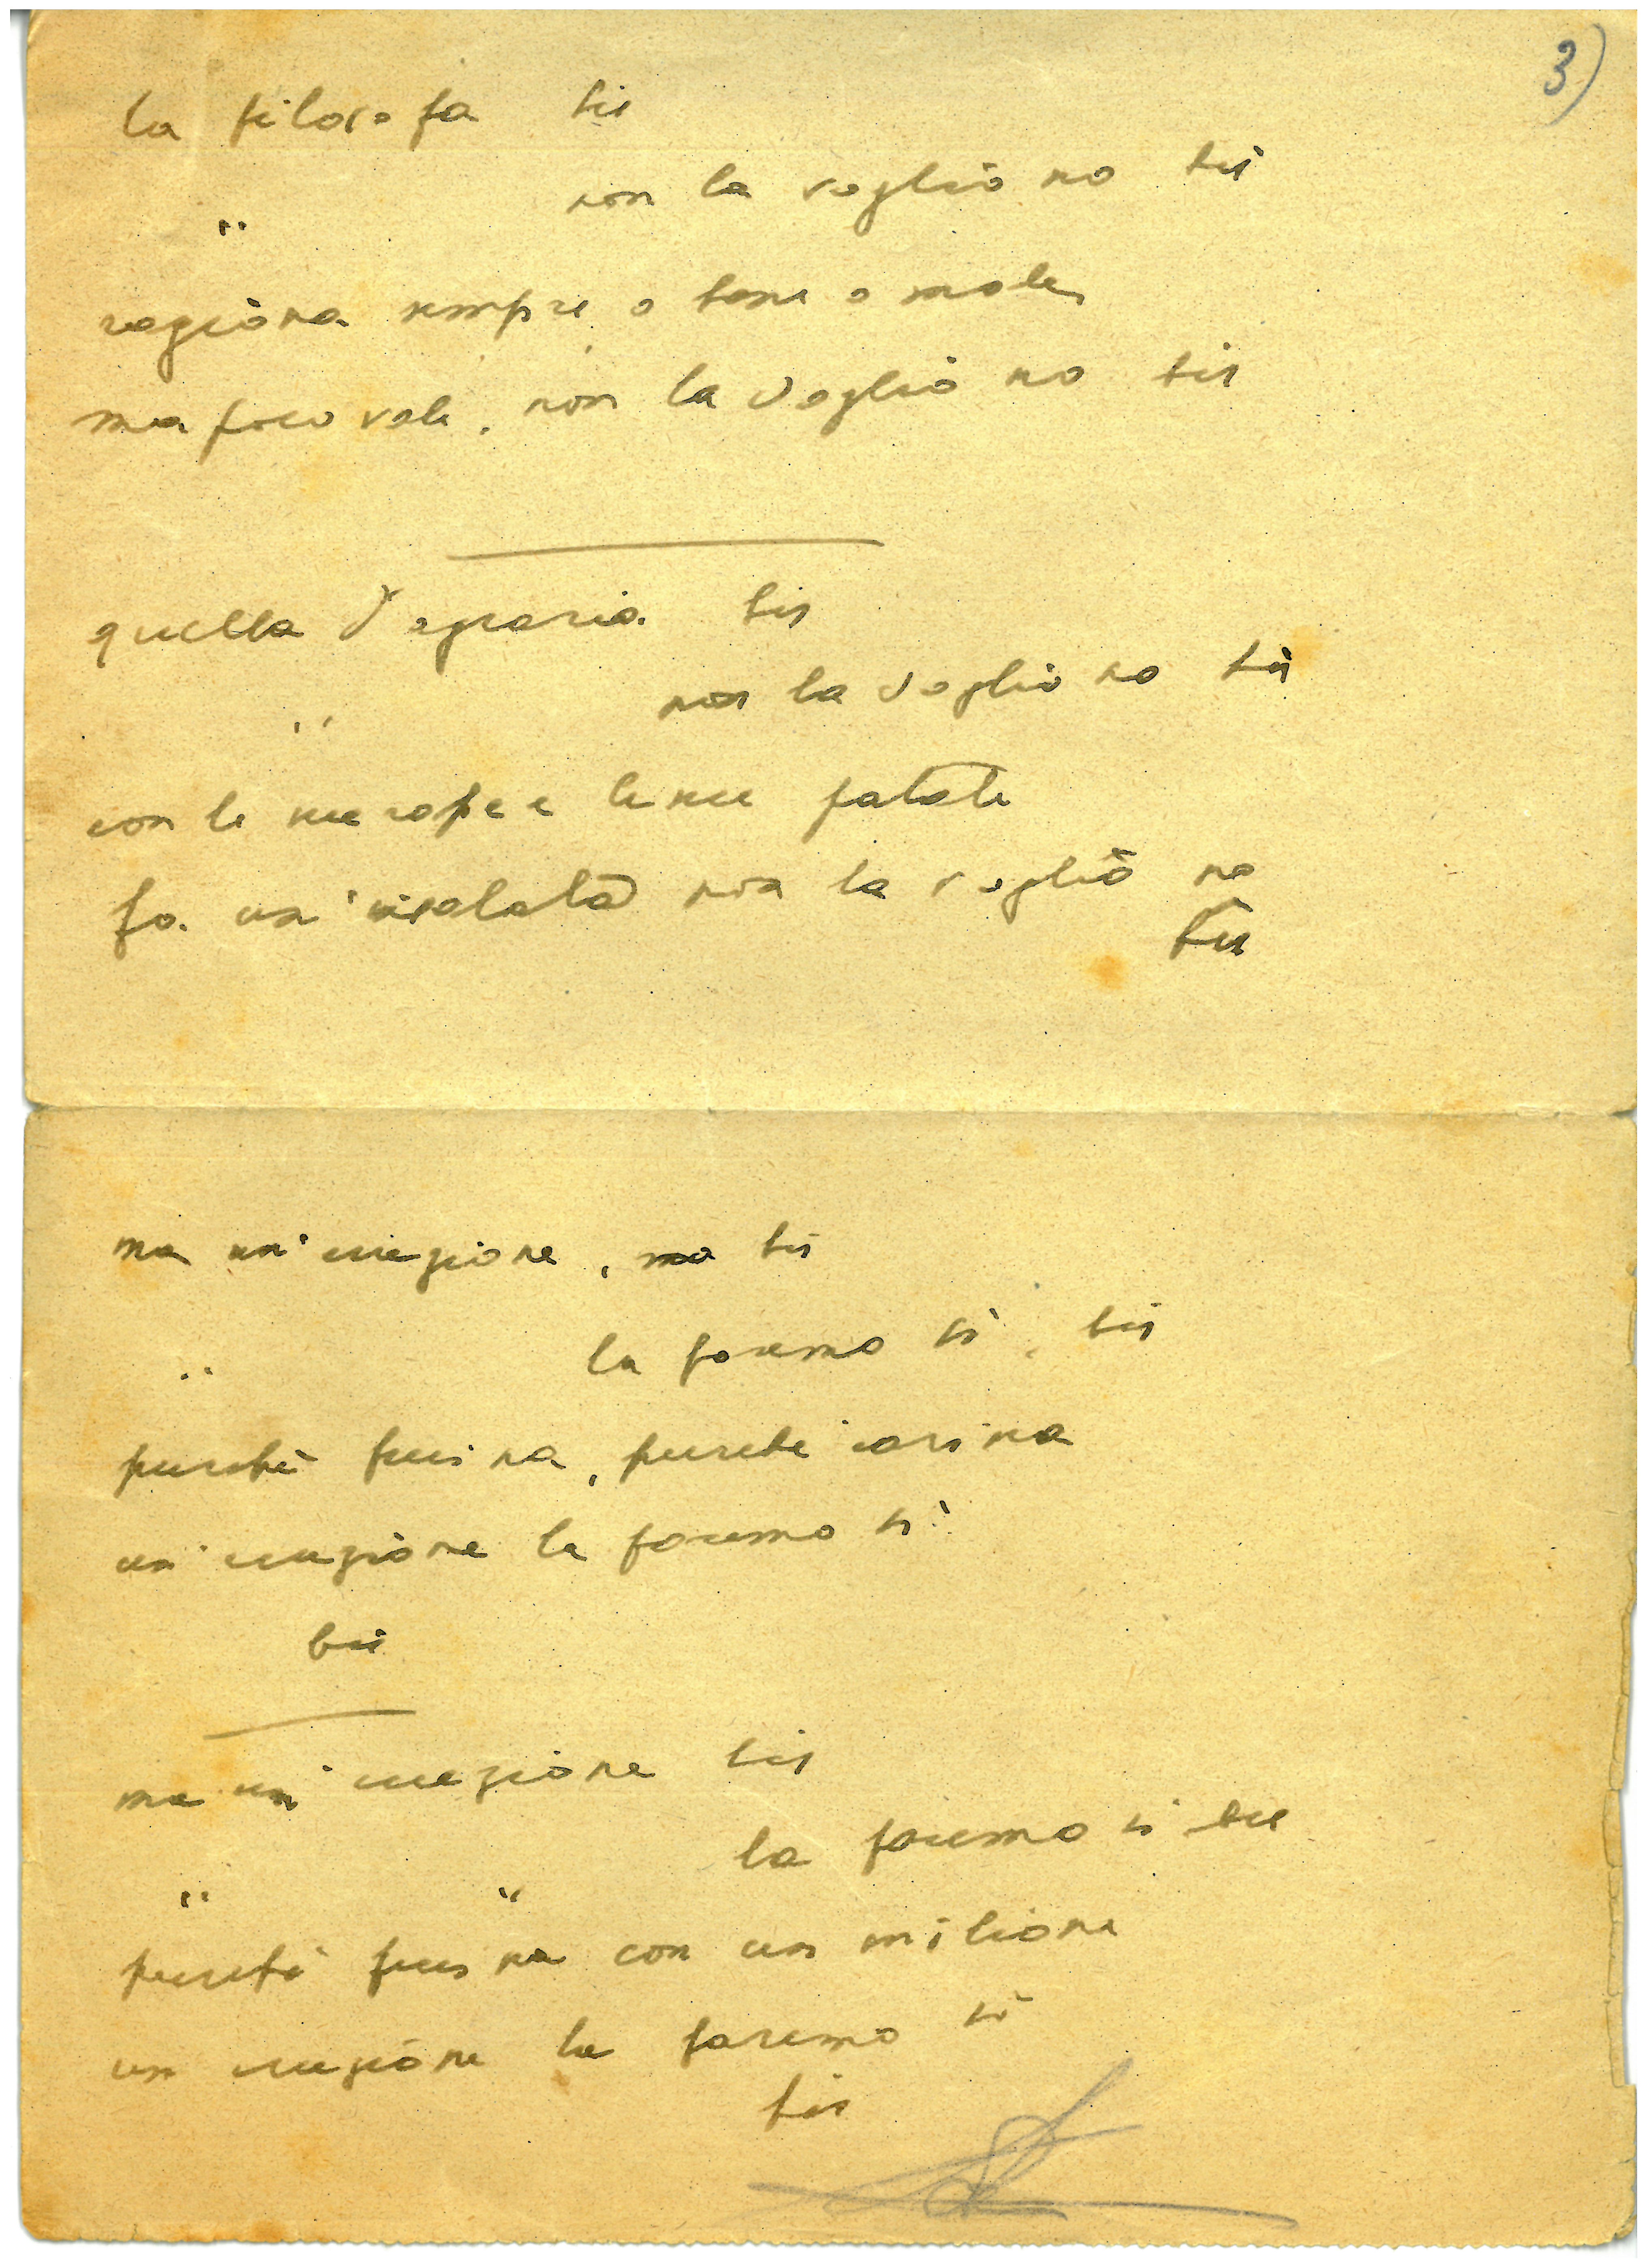 3)
la filosofa bis
" non la voglio no bis
ragiona sempre o bene o male,
ma poco vale, non la voglio no bis
quella d'agraria bis
" non la voglio no bis
con le e le patate
fa un'insalata non la voglio no
bis
ma un'eccezione, bis
" la faremo sì, bis
purchè piccina, purchè carina
un'eccezione la faremo sì
bis
ma un'eccezione bis
" " la faremo sì bis
purchè con un milione
un eccezione la faremo sì
bis